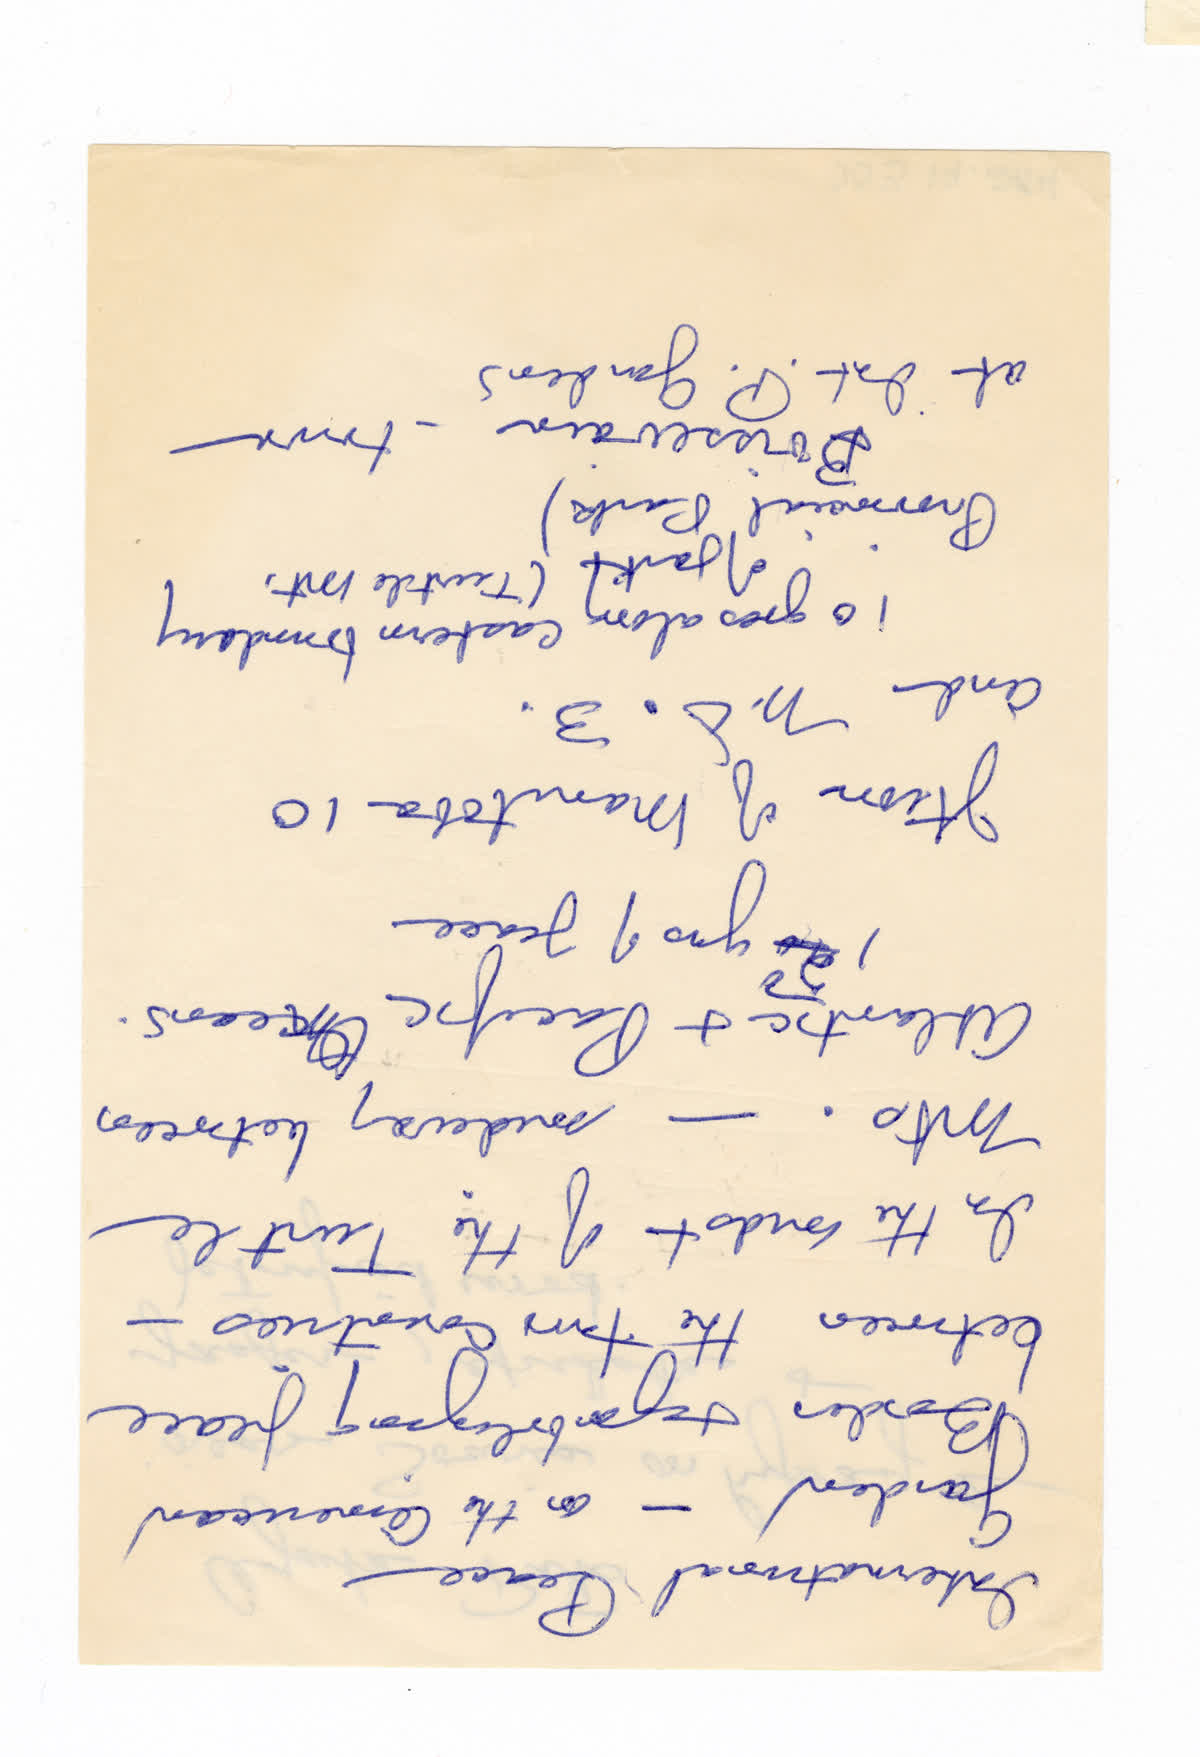 International Peace
Garden – on the American
Border symbolizing peace
between the two Countries –
In the midst of the Turtle
Mts. – midway between
Atlantic + Pacific Oceans.
150 yrs of peace
Jtion of Manitoba 10
and N.D. 3.
10 goes along eastern boundary
of park (Turtle Mt.
Provincial Park)
Boissevain – town
at Int. P. Gardens